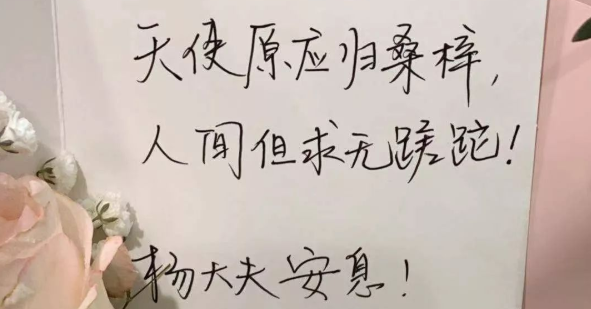 天使原应归桑梓，
人间但求无蹉跎！
杨大夫安息！